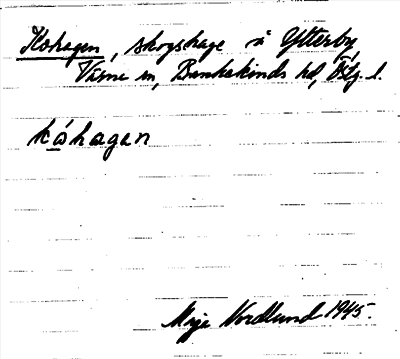 Kohagen, skogshage å Ytterby,
Värna sn, Bankekinds hd, Östg. l.
kóhagan
Maja Nordlund 1945.